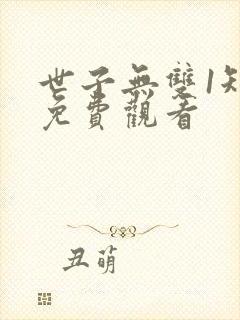 世子無雙1
免費觀看
丑萌